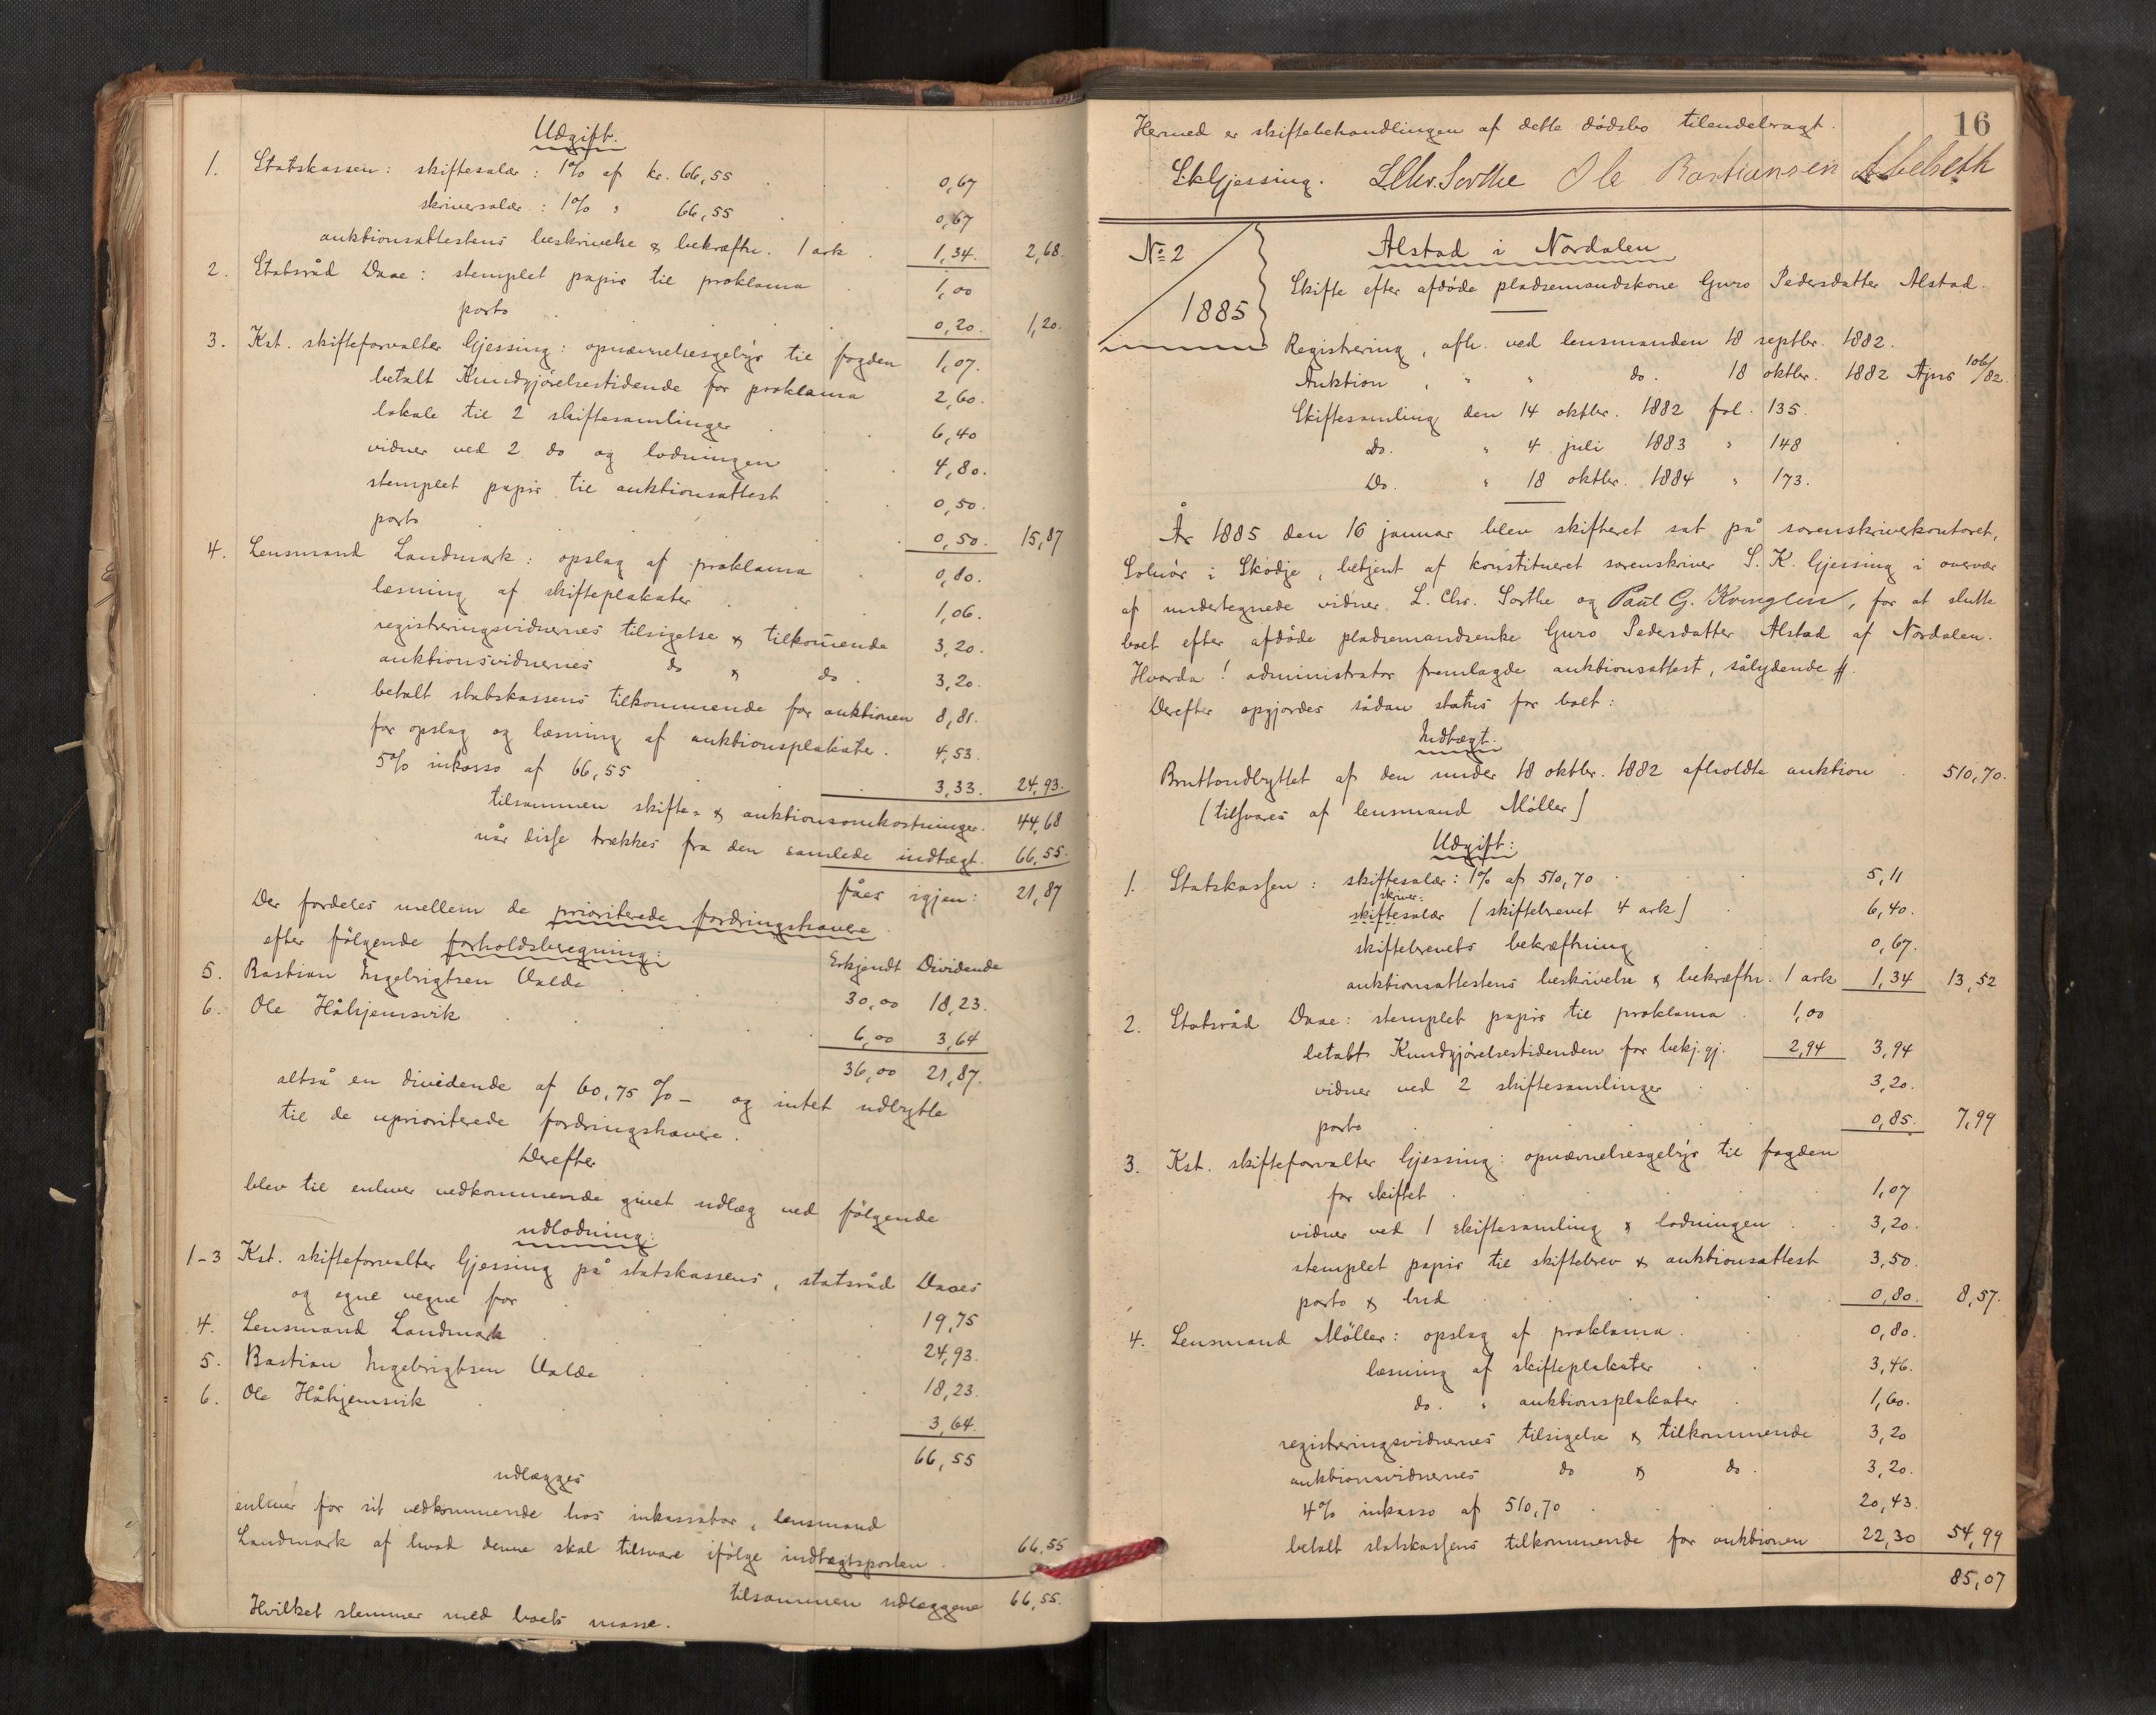 Udgift.
1. Statskassen: skiftesalær: 1% af kr. 66,55 0,67
skriversalær: 1% " 66,55 0,67
auktionsattestens beskrivelse & bekræftn. 1 ark 1,34. 2,68.
2. Statsråd Daae: stemplet papir til proklama 1,00
porto 0,20. 1,20.
3. Kst. skifteforvalter Gjessing: opnævnelsesgebyr til fogden 1,07.
betalt Kundgjørelsestidende for proklama 2,60.
lokale til 2 skiftesamlinger 6,40
vidner ved 2 do og lodningen 4,80.
stemplet papir til auktionsattest 0,50.
porto 0,50. 15,87
4. Lensmand Landmark: opslag af proklama 0,80.
læsning af skifteplakater 1,06.
registreringsvidnernes tilsigelse & tilkommende 3,20.
auktionsvidnernes do & do. 3,20.
betalt statskassens tilkommende for auktionen 8,81.
for opslag og læsning af auktionsplakater. 4,53.
5% inkasso af 66,55 3,33. 24,93.
tilsammen skifte- & auktionsomkostninger. 44,68
når disse trækkes fra den samlede indtægt. 66,55.
fåes igjen: 21,87
Der fordeles mellem de prioriterede fordringshavere
efter følgende forholdsberegning:
Erkjendt Dividende
5. Bastian Ingebrigtsen Valde 30,00 18,23.
6. Ole Håhjemsvik 6,00 3,64
36,00 21,87.
altså en dividende af 60,75 % – og intet udbytte
til de uprioriterede fordringshavere.
Derefter
blev til enhver vedkommende givet udlæg ved følgende
udlodning:
1-3 Kst. skifteforvalter Gjessing på statskassens, statsråd Daaes
og egne vegne for 19,75
4. Lensmand Landmark 24,93.
5. Bastian Ingebrigtsen Valde 18,23.
6. Ole Håhjemsvik 3,64.
66,55
udlægges
enhver for sit vedkommende hos inkassator, lensmand
Landmark af hvad denne skal tilsvare ifølge indtægtsposten. 66,55
tilsammen udlæggene 66,55.
Hvilket stemmer med boets masse.
16
Hermed er skiftebehandlingen af dette dødsbo tilendebragt.
S.K.Gjessing. L.Chr.Sorthe Ole Bastiansen
No 2
1885
Alstad i Nordalen
Skifte efter afdøde pladsemandskone Guro Pedersdatter Alstad.
Registrering, afh. ved lensmanden 18 septbr. 1882.
Auktion, " " do. 18 oktbr. 1882 Ajno 106/82.
Skiftesamling den 14 oktbr. 1882 fol. 135.
do. " 4 juli 1883 " 148
Do. " 18 oktbr. 1884 " 173.
År 1885 den 16 januar blev skifteret sat på sorenskriverkontoret,
Solnør i Skodje, betjent af konstitueret sorenskriver S. K. Gjessing i overvær
af undertegnede vidner L. Chr. Sorthe og Paul G. Kvinglen, for at slutte
boet efter afdøde pladsemandsenke Guro Pedersdatter Alstad af Nordalen.
Hvorda! administrator fremlagde auktionsattest, sålydende #.
Derefter opgjordes sådan status for boet:
Indtægt.
Bruttoudbyttet af den under 18 oktbr. 1882 afholdte auktion 510,70.
[tilsvares af lensmand Møller]
Udgift:
1. Statskassen: skiftesalær: 1% af 510,70 5,11
skriver-
skiftesalær [skiftebrevet 4 ark] 6,40.
skiftebrevets bekræftning 0,67.
auktionsattestens beskrivelse & bekræftn. 1 ark 1,34 13,52
2. Statsråd Daae: stemplet papir til proklama 1,00
betalt Kundgjørelsestidenden for bekj.gj. 2,94 3,94
vidner ved 2 skiftesamlinger 3,20.
porto 0,85. 7,99
3. Kst. skifteforvalter Gjessing: opnævnelsesgebyr til fogden
for skiftet 1,07
vidner ved 1 skiftesamling & lodningen 3,20.
stemplet papir til skiftebrev & auktionsattest 3,50.
porto & bud 0,80. 8,57.
4. Lensmand Møller: opslag af proklama. 0,80.
læsning af skifteplakater 3,46.
do. " auktionsplakater 1,60.
registreringsvidnernes tilsigelse & tilkommende 3,20
auktionsvidnernes do & do. 3,20.
4% inkasso af 510,70 20,43.
betalt statskassens tilkommende for auktionen 22,30 54,99
85,07